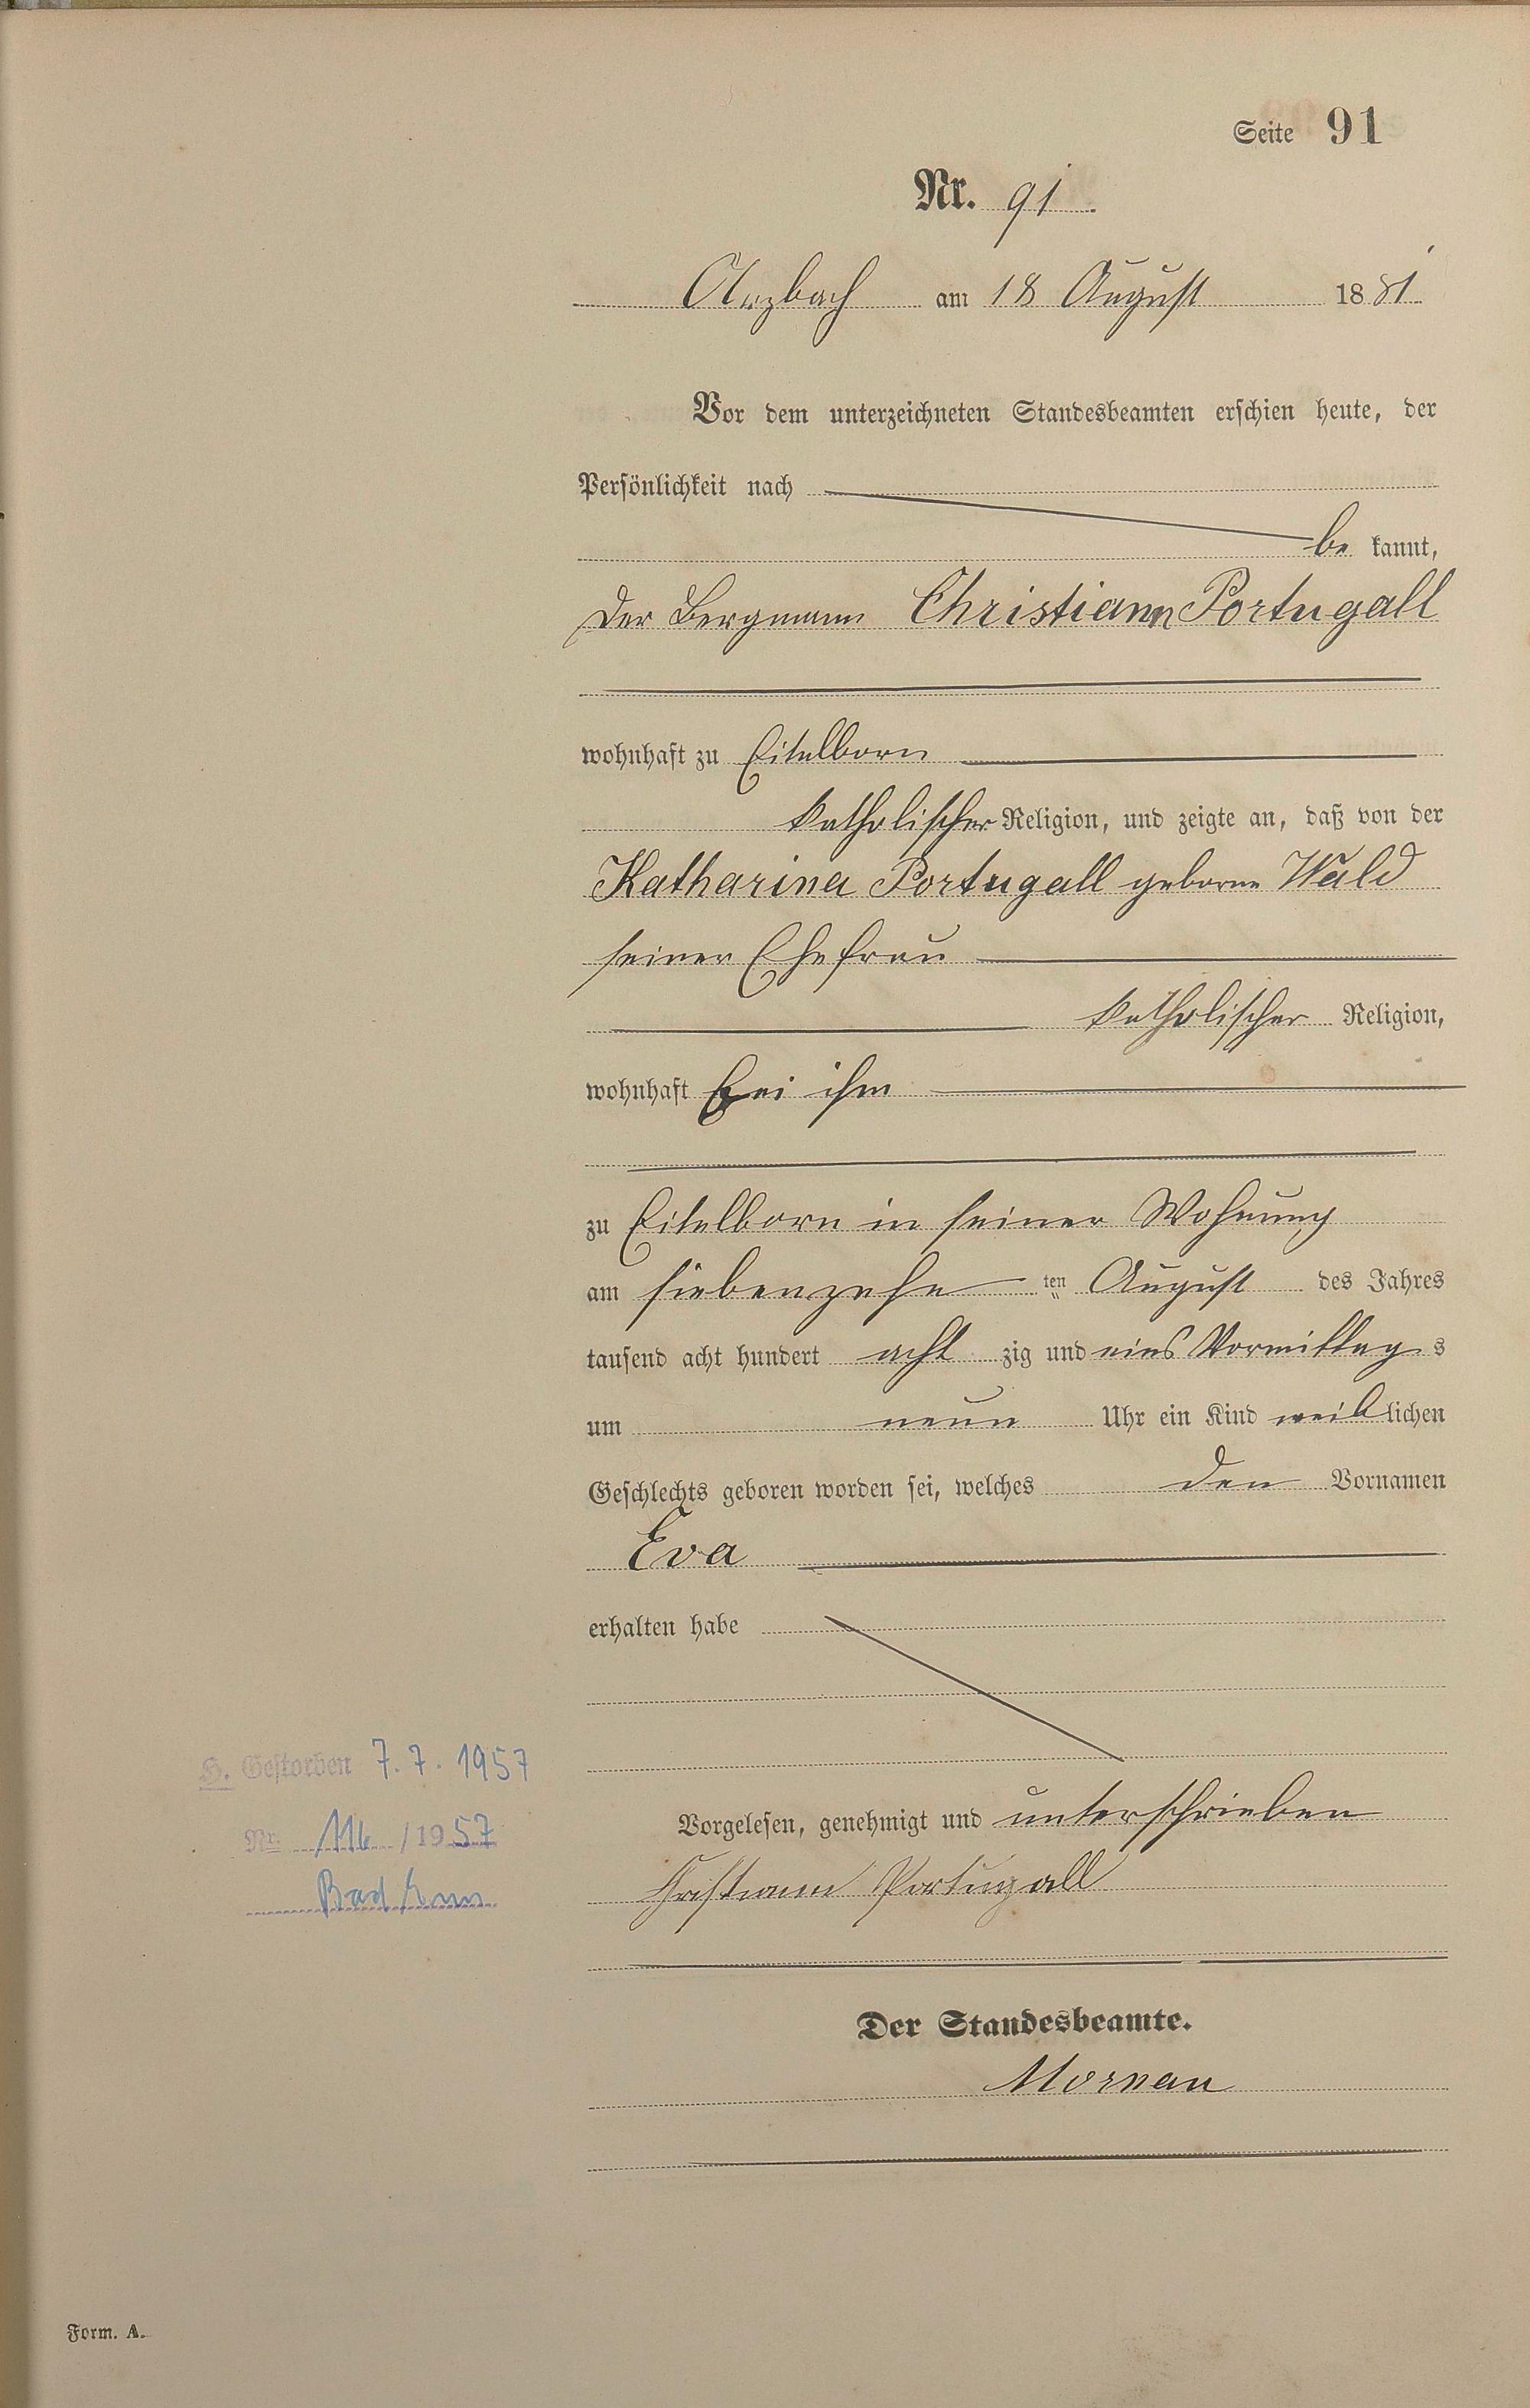 Seite 91
Nr. 91
Arzbach am 18 August 1881
Vor dem unterzeichneten Standesbeamten erschien heute, der
Persönlichkeit nach
be kannt,
der Bergmann Christiann Portugall
wohnhaft zu Eitelborn
katholischer Religion, und zeigte an, daß von der
Katharina Portugall geborne Wald
seiner Ehefrau
katholischer Religion,
wohnhaft bei ihm
zu Eitelborn in seiner Wohnung
am siebenzehn ten August des Jahres
tausend acht hundert acht zig und eins Vormittag s
um neun Uhr ein Kind weiblichen
Geschlechts geboren worden sei, welches den Vornamen
Eva
erhalten habe
H. Gestorben 7.7.1957
Nr. 116/1957
Bad Ems
Vorgelesen, genehmigt und unterschrieben
Christiann Portugall
Der Standesbeamte.
Form. A.